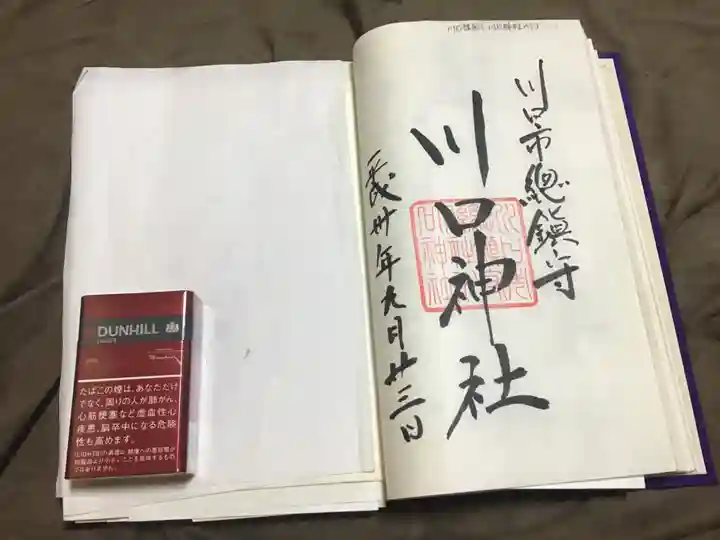 川口市總鎮守
川口神社
平成卅年九月廿三日
DUNHILL
たばこの煙は、あなただけ
でなく、周りの人が肺がん、
心筋梗塞など虚血性心
疾患、脳卒中になる危険
性も高めます。